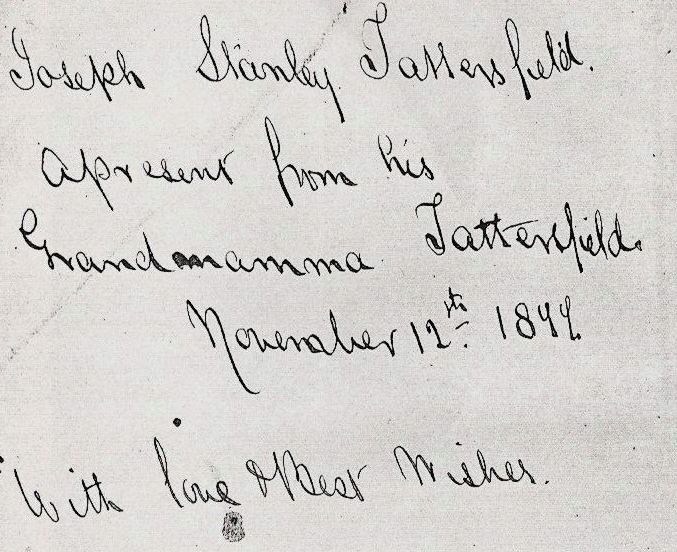 Joseph Stanley Tattersfield.
A present from his
Grandmamma Tattersfield.
November 12th 1899.
With love & Best Wishes.